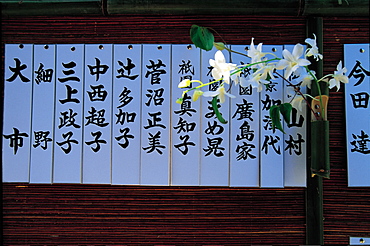 今田達
山村
京 加津代
園 廣島家
晃
祇 真知子
菅沼正美
辻多加子
中西超子
三上政子
細野
大市